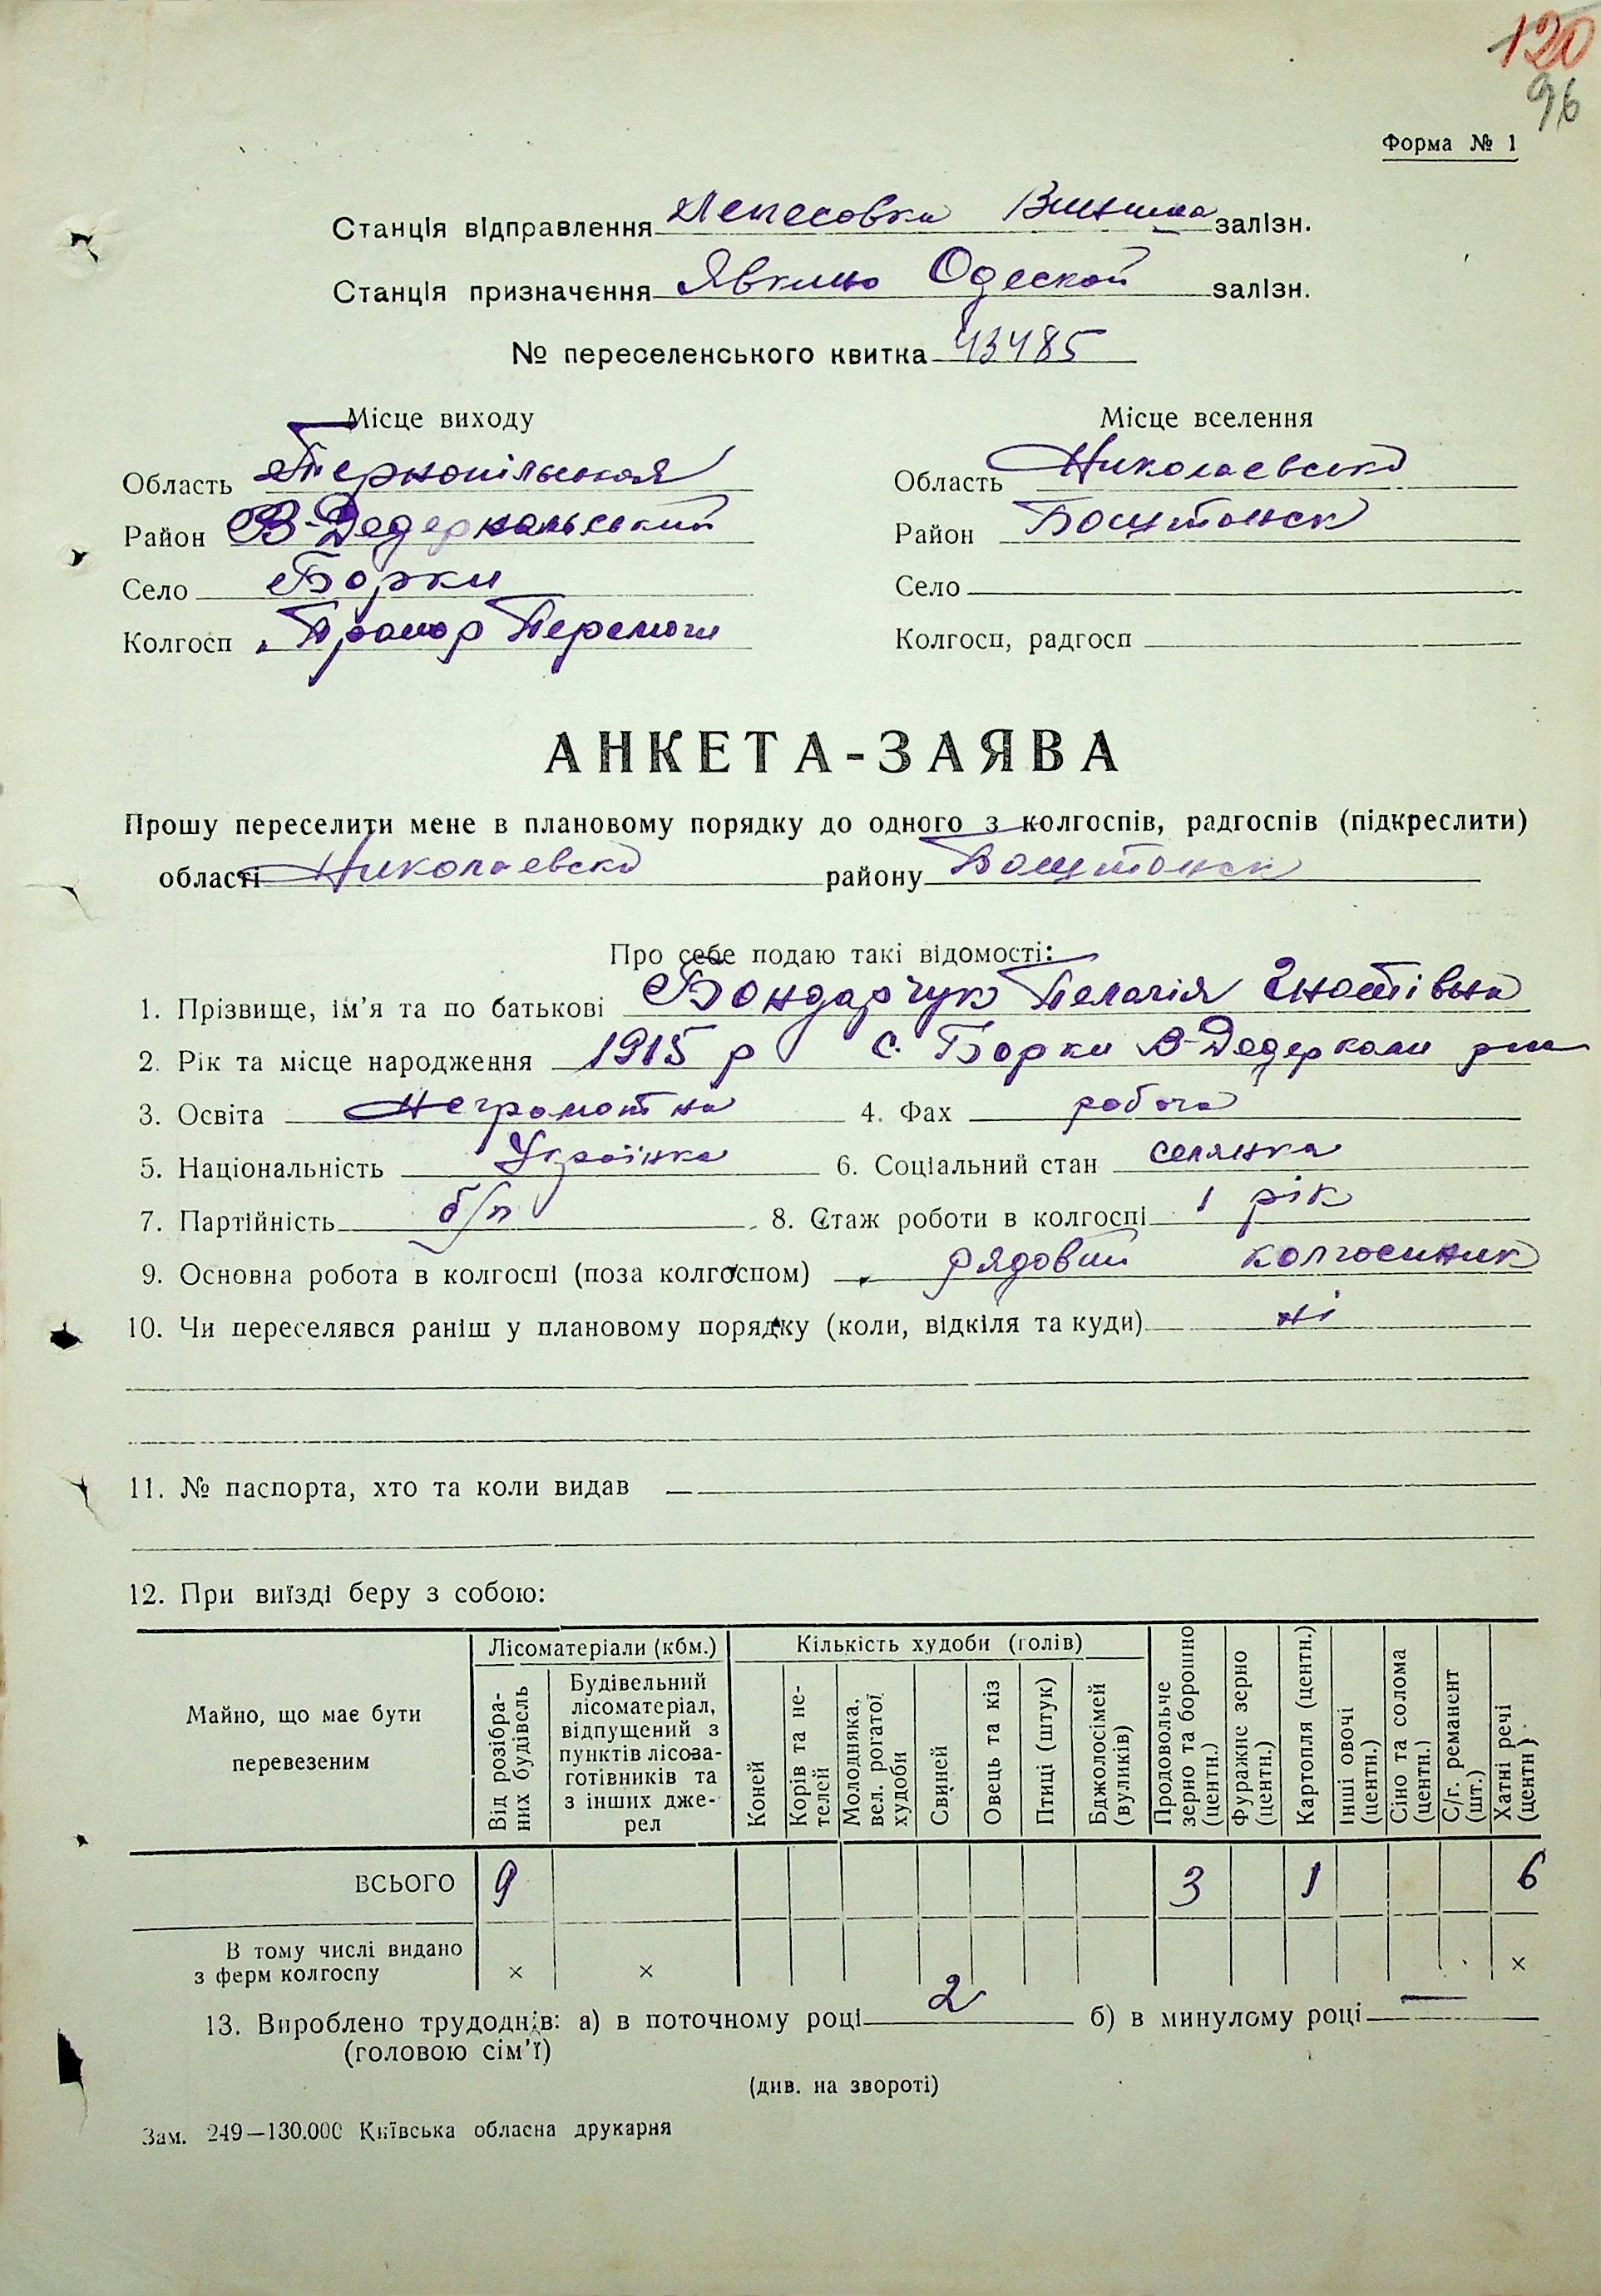 120
96
Форма № 1
Станція відправлення Лепесовка залізн.
Станція призначення Явкино Одеской залізн.
№ переселенського квитка 43485
Місце виходу
Місце вселення
Область Тернопільская
Область Николаевска
Район В-Дедеркальський
Район Боштонск
Село Борки
Село
Колгосп "Прапор Перемоги
Колгосп, радгосп
АНКЕТА-ЗАЯВА
Прошу переселити мене в плановому порядку до одного з колгоспів, радгоспів (підкреслити)
області Николаевска району Боштонск
Про себе подаю такі відомості:
1. Прізвище, ім'я та по батькові Бондарчук Пелагія Гнатівна
2. Рік та місце народження 1915 р с. Борки В-Дедеркали р-на
3. Освіта Неграмотна 4. Фах робоча
5. Національність Українка 6. Соціальний стан селянка
7. Партійність б/п 8. Стаж роботи в колгоспі 1 рік
9. Основна робота в колгоспі (поза колгоспом) рядовий колгоспник
10. Чи переселявся раніш у плановому порядку (коли, відкіля та куди) ні
11. № паспорта, хто та коли видав —
12. При виїзді беру з собою:
Майно, що має бути перевезеним
Лісоматеріали (кбм.)
Від розібра-
них будівель
Будівельний
лісоматеріал,
відпущений з
пунктів лісоза-
готівників та
з інших дже-
рел
Кількість худоби (голів)
Коней
Корів та не-
телей
Молодняка,
вел. рогатої
худоби
Свиней
Овець та кіз
Птиці (штук)
Бджолосімей
(вуликів)
Продовольче
зерно та борошно
(центн.)
Фуражне зерно
(центн.)
Картопля (центн.)
Інші овочі
(центн.)
Сіно та солома
(центн.)
С/г. реманент
(шт.)
Хатні речі
(центн.)
ВСЬОГО 9 3 1 6
В тому числі видано
з ферм колгоспу × × ×
13. Вироблено трудоднів: а) в поточному році 2 б) в минулому році —
(головою сім'ї)
(див. на звороті)
Зам. 249—130.000 Київська обласна друкарня